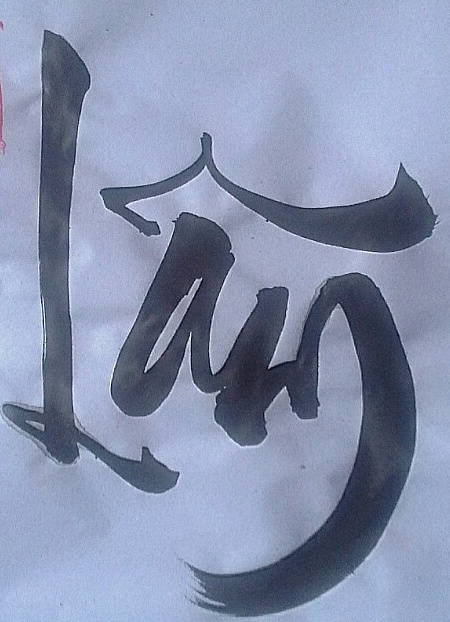 Lâm